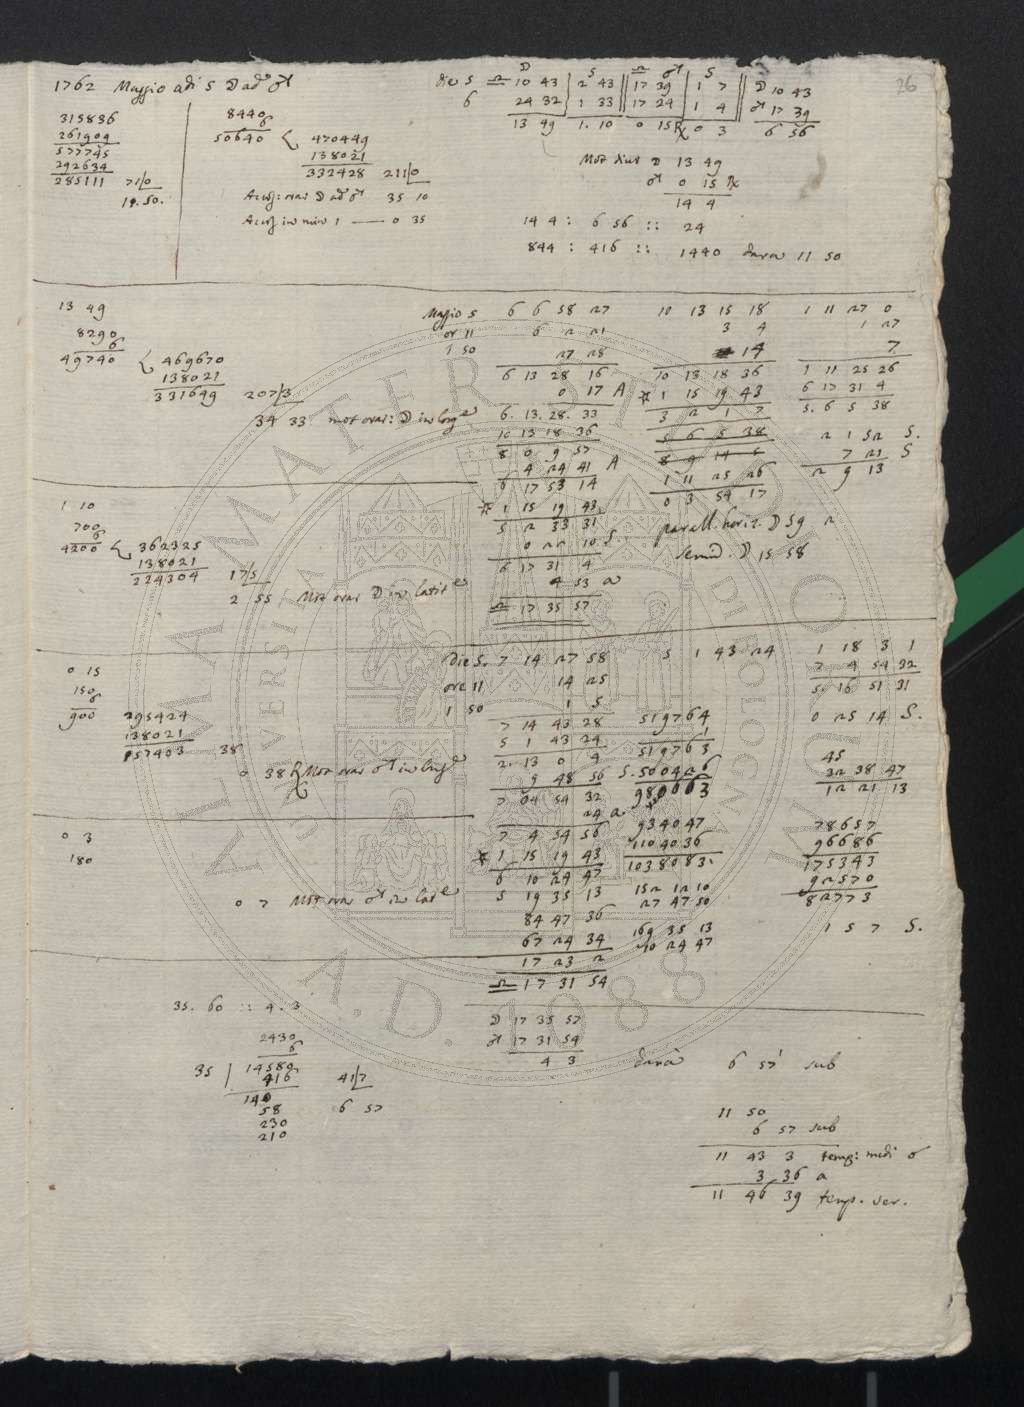 26
1762 Maggio adi 5 ☽ ad ♂
315836
261909
577745
292634
285111 71/0
11.50.
8440
6
50640
470449
138021
332428 211/0
Accos: orar ☽ ad ♂ 35 10
Accos in min 1 — 0 35
☽ S ♎ ♂ S
die 5 ♎ 10 43 2 43 17 39 1 7 ☽ 10 43
6 24 32 1 33 17 24 1 4 ♂ 17 39
13 49 1. 10 0 15 ℞ 0 3 6 56
Mot diur ☽ 13 49
♂ 0 15 ℞
14 4
14 4 : 6 56 :: 24
844 : 416 :: 1440 darà 11 50
13 49
8290
6
49740
469670
138021
331649 207/3
34 33 mot orar: ☽ in long^e
Maggio 5 6 6 58 27 10 13 15 18 1 11 27 0
or 11 6 2 21 3 4 1 27
1 50 27 28 14 7
6 13 28 16 10 13 18 36 1 11 25 26
0 17 A 1 15 19 43 6 17 31 4
6. 13. 28. 33 3 2 1 7 5. 6 5 38
10 13 18 36 5 6 5 38 2 1 52 S.
8 0 9 57 8 9 14 5 7 21 S
4 24 41 A 1 11 25 26 2 9 13
6 17 53 14 0 3 54 17
1 15 19 43
5 2 33 31
0 22 10 S.
6 17 31 4
4 53 a
♎ 17 35 57
parall. horiz. ☽ 59 2
semid. ☽ 15 58
1 10
700
6
4200
362325
138021
224304 17/5
2 55 Mot orar ☽ in latit^e
0 15
150
6
900
295424
138021
157403 38
0 38 ℞ Mot orar ♂ in long^e
Die 5. 7 14 27 58 5 1 43 24 1 18 3 1
ore 11 14 25 7 4 54 32
1 50 1 5 5. 16 51 31
7 14 43 28 519764 0 25 14 S.
5 1 43 24 1
2. 13 0 4 519763
9 48 56 S. 500426 45
7 04 54 32 980063 32 38 47
24 a 12 21 13
7 4 54 56 934047 78657
1 15 19 43 1104036 96686
6 10 24 97 1038083. 175343
5 19 35 13 152 12 10 92570
84 47 36 27 47 50 82773
67 24 34 169 35 13 1 5 7 S.
17 23 2 40 24 47
♎ 17 31 54
0 3
180
0 7 Mot orar ♂ in lat^e
35. 60 :: 4. 3
2430
6
35 | 14580
416 41/7
140
58 6 57
230
210
☽ 17 35 57
♂ 17 31 54
4 3 darà 6 57 sub
11 50
6 57 sub
11 43 3 temp: medi ☌
3 36 a
11 46 39 temp. ver.
ALMA MATER STUDIORUM
UNIVERSITÀ DI BOLOGNA
A.D. 1088